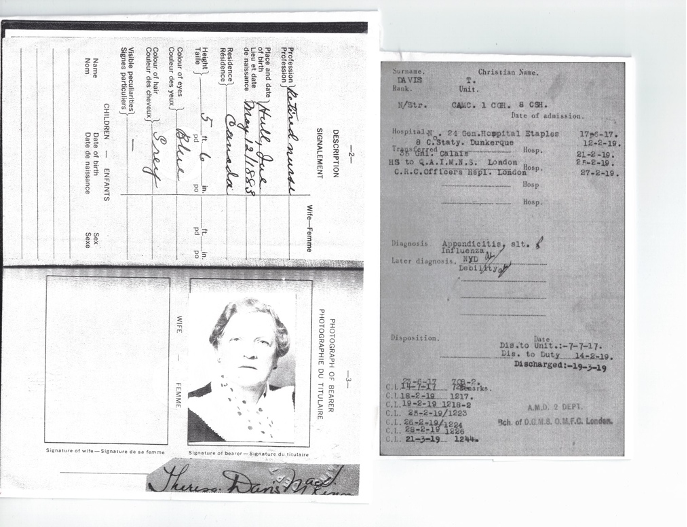 —2—
DESCRIPTION
SIGNALEMENT
Wife—Femme
Profession
Profession
retired nurse
Place and date
of birth
Lieu et date
de naissance
Hull, Que
May 12/1888
Residence
Résidence
Canada
Height
Taille
5 ft. 6 in.
pd po
ft. in.
pd po
Colour of eyes
Couleur des yeux
Blue
Colour of hair
Couleur des cheveux
Grey
Visible peculiarities
Signes particuliers
—
CHILDREN — ENFANTS
Name
Nom
Date of birth
Date de naissance
Sex
Sexe
—3—
PHOTOGRAPH OF BEARER
PHOTOGRAPHIE DU TITULAIRE
WIFE — FEMME
Signature of wife—Signature de sa femme
Signature of bearer—Signature du titulaire
Theresa Davis
Surname. Christian Name.
DAVIS T.
Rank. Unit.
N/Str. CAMC. 1 CGH. 8 CSH.
Date of admission.
Hospital 24 Gen.Hospital Etaples
8 C.Staty. Dunkerque 12-2-19.
Transferred Calais Hosp. 21-2-19.
to Q.A.I.M.N.S. London Hosp.
C.R.C.Officers Hspl. London 27-2-19.
Hosp
Hosp.
Diagnosis Appendicitis, slt.
Influenza.
Later diagnosis. NYD
Debility
Disposition. Date
Dis.to Unit.:-7-7-17.
Dis. to Duty 14-2-19.
Discharged:-19-3-19
C.L. 14-7-17 Remarks.
C.L. 18-2-19 1217.
C.L. 19-2-19 1218-2
C.L. 25-2-19/1223
C.L. 26-2-19/1224
C.L. 28-2-19 1226
C.L. 21-3-19 1244.
A.M.D. 2 DEPT.
Bch. of D.G.M.S. O.M.F.C. London.